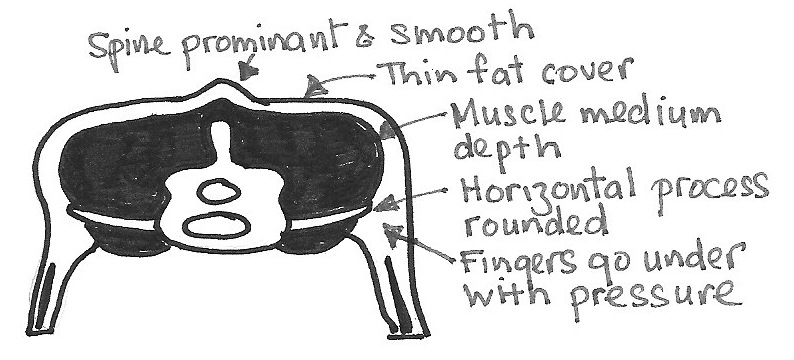 Spine prominant & smooth
Thin fat cover
Muscle medium
depth
Horizontal process
rounded
Fingers go under
with pressure